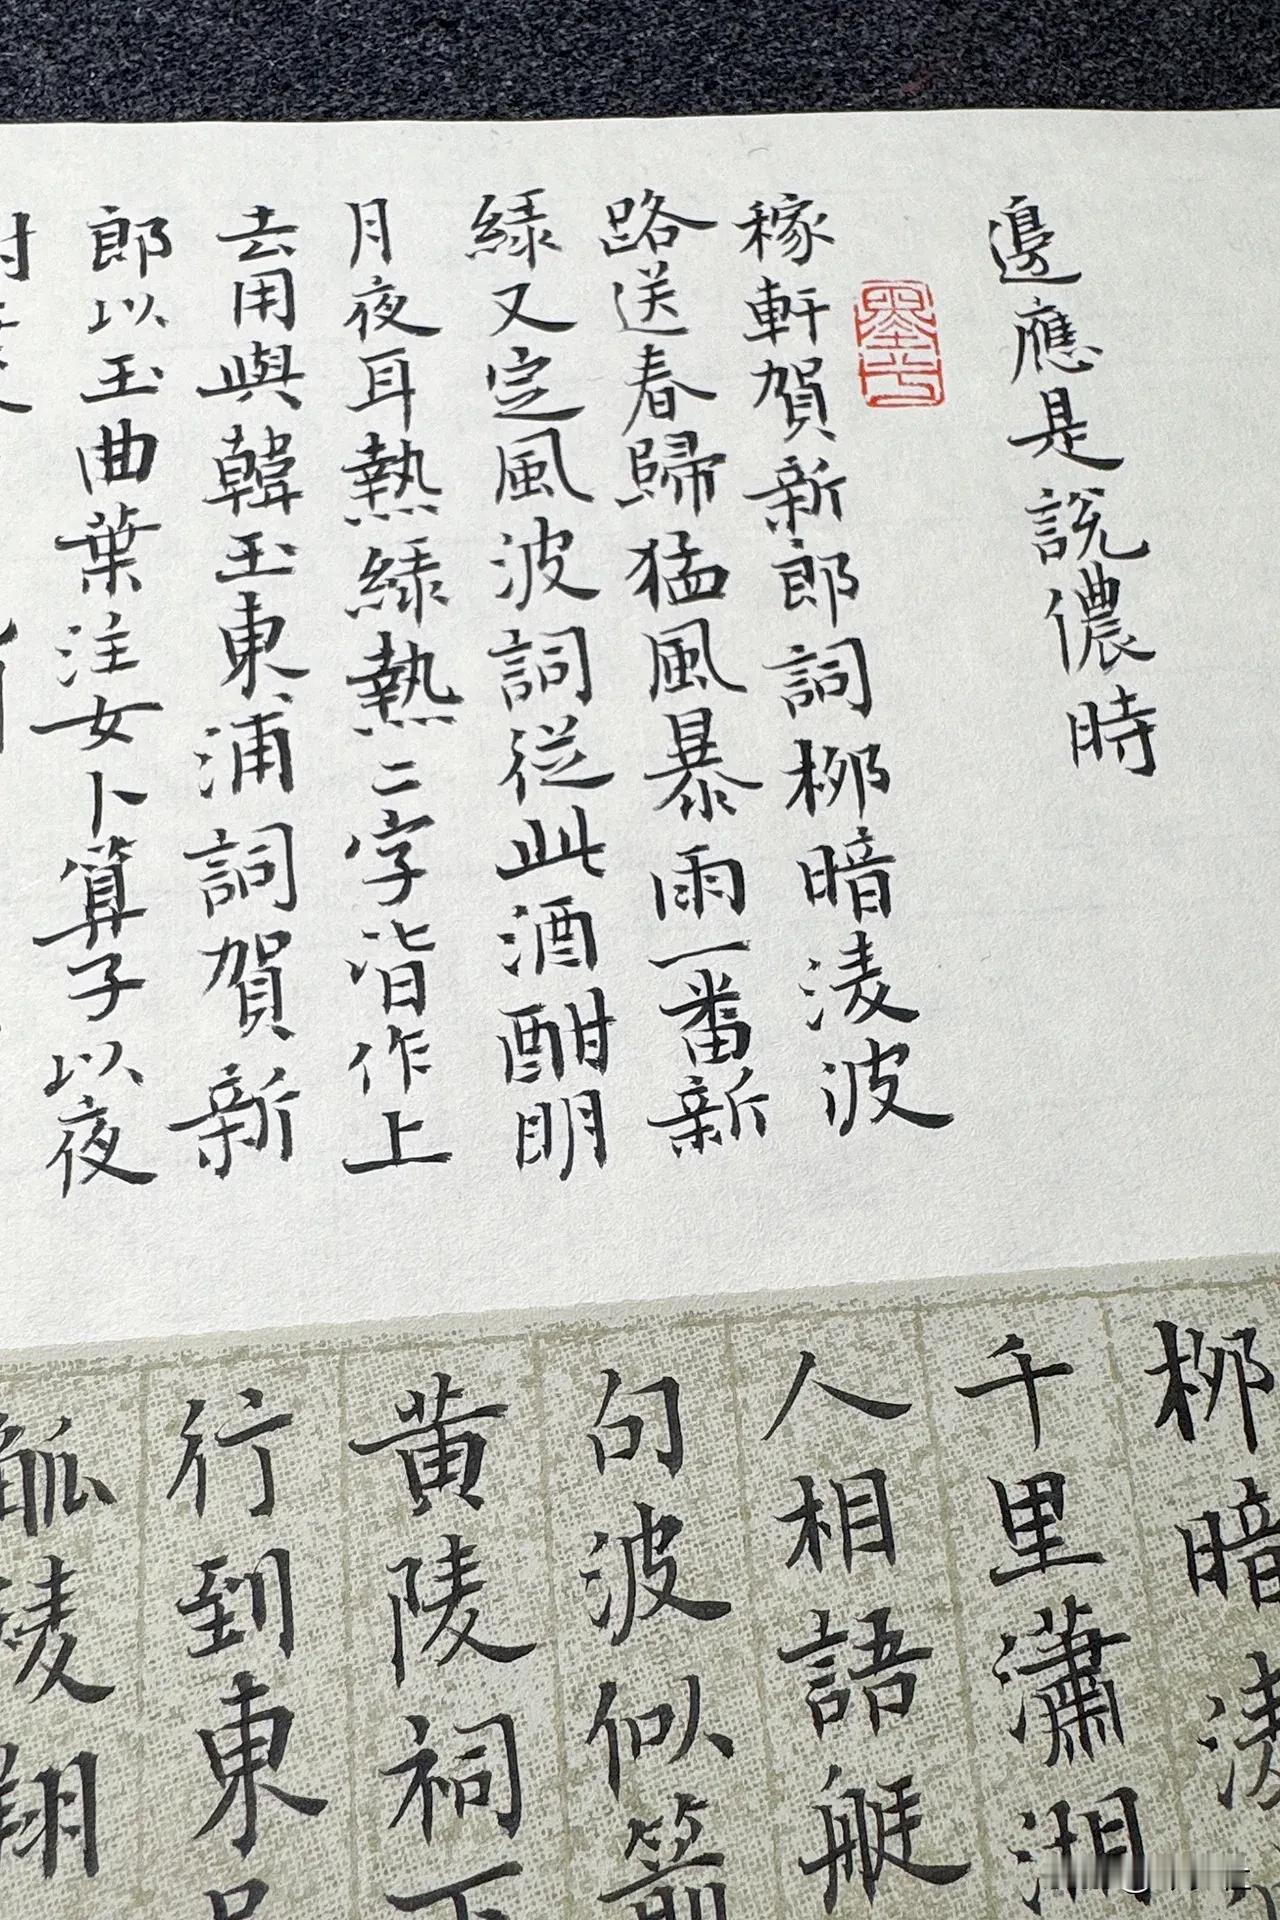 邊應是說儂時
稼軒賀新郎詞栁暗淩波
路送春歸猛風暴雨一番新
緑又定風波詞從此酒酣明
月夜耳熱緑熱二字皆作上
去用與韓玉東浦詞賀新
郎以玉曲葉注女卜算子以夜
栁暗淩
千里瀟湘
人相語艇
句波似箭
黄陵祠下
行到東
觚稜翔